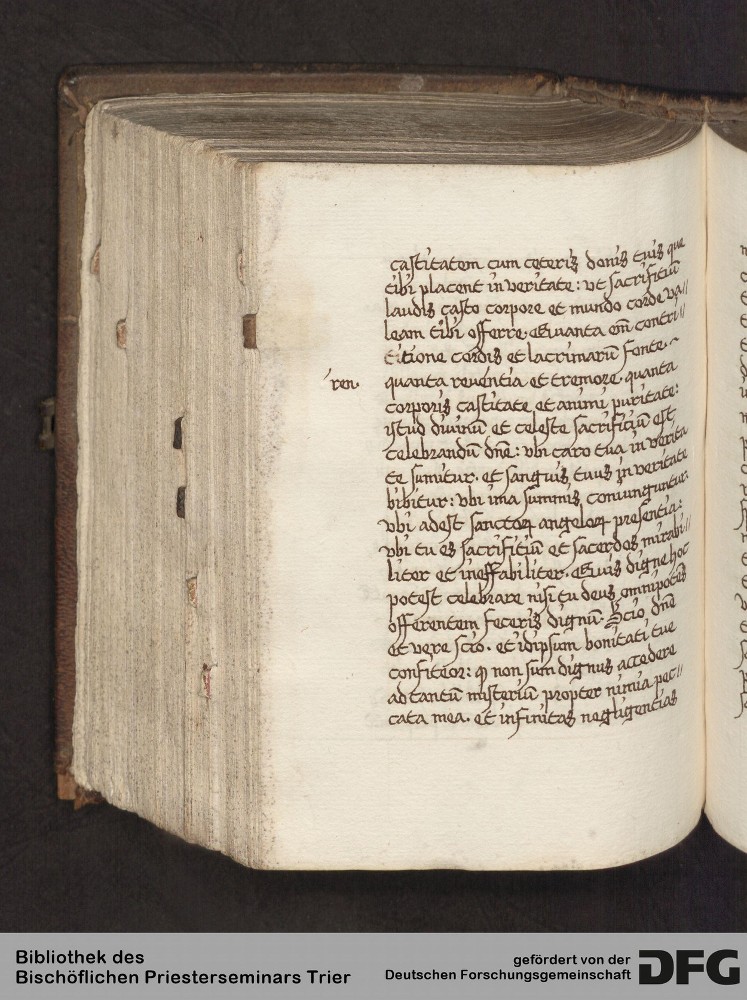 castitatem cum ceteris donis tuis que
tibi placent in veritate: ut sacrifitiū
laudis casto corpore et mundo corde va//
leam tibi offerre. Quanta em̄ contri//
titione cordis et lacrimarū fonte.~
ren.
quanta reventia et tremore. quanta
corporis castitate et animi puritate:
istud divinū et celeste sacrifitiū est
celebrandū dn̄e: ubi caro tua in verita
te sumitur. et sanguis tuus in veritate
bibitur: ubi ima summis coniunguntur.
ubi adest sanctoꝝ angeloꝝ presentia:
ubi tu es sacrifitiū et sacerdos mirabi//
liter et ineffabiliter. Quis digne hoc
potest celebrare nisi tu deus omnipotēs
offerentem feceris dignū. Scio dn̄e
et vere scio. et idipsum bonitati tue
confiteor: ꝙ non sum dignus accedere
ad tantū misteriū propter nimia pec//
cata mea. et infinitas negligentias
Bibliothek des
Bischöflichen Priesterseminars Trier
gefördert von der
Deutschen Forschungsgemeinschaft
DFG